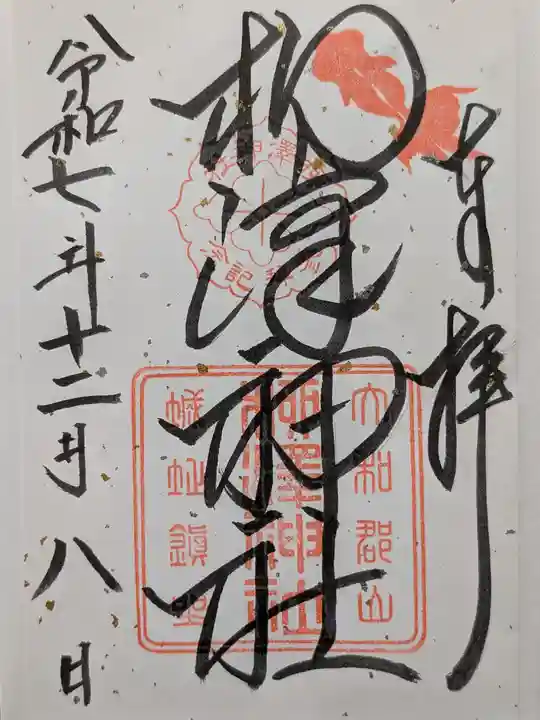 奉拝
柳澤神社
大和郡山
柳澤神社
城址鎮座
令和七年十二月八日